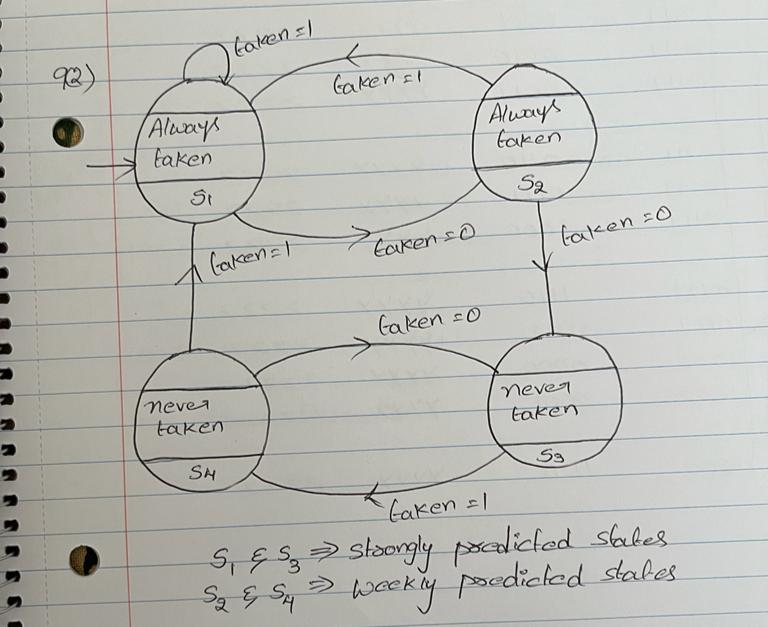 Q2)
taken=1
taken=1
Always
taken
S1
Always
taken
S2
taken=0
taken=0
taken=1
taken=0
never
taken
S4
never
taken
S3
taken=1
S1 & S3 ⇒ strongly predicted states
S2 & S4 ⇒ weekly predicted states